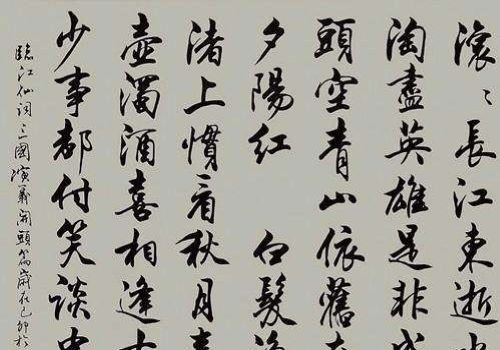 滾〻長江東逝水
淘盡英雄是非成
頭空青山依舊在
夕陽紅 白髮漁
渚上慣看秋月春
壺濁酒喜相逢古
少事都付笑談中
臨江仙詞三國演義開頭篇歲在己卯於